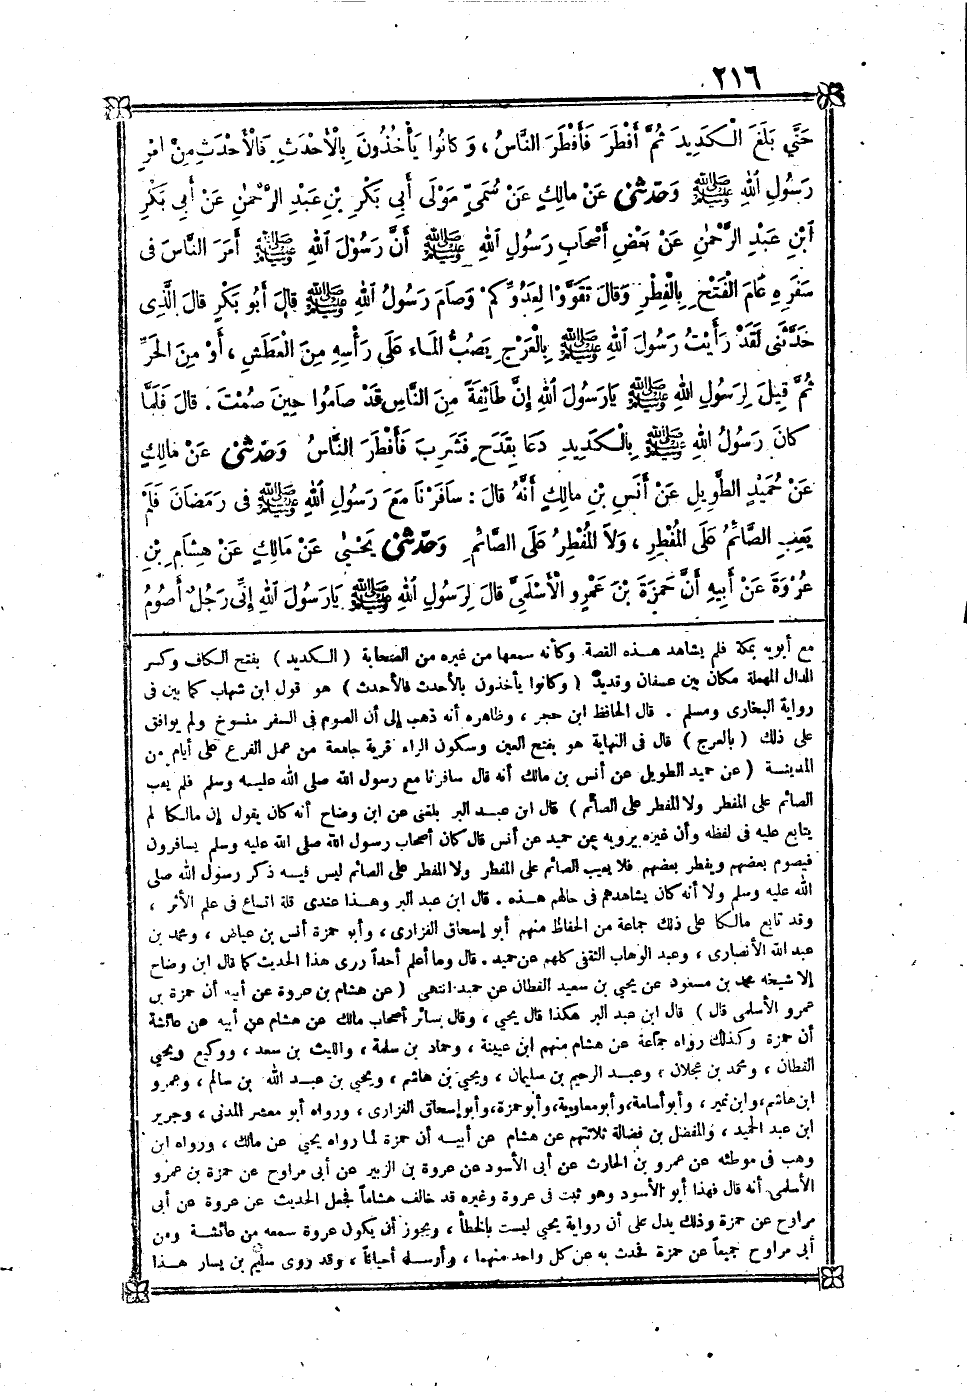 ٢١٦
حَتَّى بَلَغَ الْكَدِيدَ ثُمَّ أَفْطَرَ فَأَفْطَرَ النَّاسُ ، وَكَانُوا يَأْخُذُونَ بِالْأَحْدَثِ فَالْأَحْدَثِ مِنْ أَمْرِ
رَسُولِ اللهِ ﷺ وَحَدَّثَنِي عَنْ مالِكٍ عَنْ سُمَيٍّ مَوْلَى أَبِي بَكْرِ بْنِ عَبْدِ الرَّحْمٰنِ عَنْ أَبِي بَكْرِ
ابْنِ عَبْدِ الرَّحْمٰنِ عَنْ بَعْضِ أَصْحَابِ رَسُولِ اللهِ ﷺ أَنَّ رَسُولَ اللهِ ﷺ أَمَرَ النَّاسَ فى
سَفَرِهِ عَامَ الْفَتْحِ بِالْفِطْرِ وَقَالَ تَقَوَّوْا لِعَدُوِّكُمْ وَصَامَ رَسُولُ اللهِ ﷺ قالَ أَبُو بَكْرٍ قالَ الَّذِى
حَدَّثَنِى لَقَدْ رَأَيْتُ رَسُولَ اللهِ ﷺ بِالْعَرْجِ يَصُبُّ المَاءَ عَلَى رَأْسِهِ مِنَ الْعَطَشِ ، أَوْ مِنَ الحَرِّ
ثُمَّ قِيلَ لِرَسُولِ اللهِ ﷺ يَارَسُولَ اللهِ إِنَّ طَائِفَةً مِنَ النَّاسِ قَدْ صَامُوا حِينَ صُمْتَ . قالَ فَلَمَّا
كانَ رَسُولُ اللهِ ﷺ بِالْكَدِيدِ دَعَا بِقَدَحٍ فَشَرِبَ فَأَفْطَرَ النَّاسُ وَحَدَّثَنِي عَنْ مَالِكٍ
عَنْ حُمَيْدٍ الطَّوِيلِ عَنْ أَنَسِ بْنِ مالِكٍ أَنَّهُ قالَ : سَافَرْنَا مَعَ رَسُولِ اللهِ ﷺ فى رَمَضَانَ فَلَمْ
يَعِبِ الصَّائِمُ عَلَى المُفْطِرِ ، وَلاَ المُفْطِرُ عَلَى الصَّائِمِ وَحَدَّثَنِي يَحْيَى عَنْ مَالِكٍ عَنْ هِشَامِ بْنِ
عُرْوَةَ عَنْ أَبِيهِ أَنَّ حَمْزَةَ بْنَ عَمْرٍو الْأَسْلَمِيَّ قالَ لِرَسُولِ اللهِ ﷺ يَارَسُولَ اللهِ إِنِّى رَجُلٌ أَصُومُ
مع أبويه بمكة فلم يشاهد هذه القصة وكأنه سمعها من غيره من الصحابة ( الكديد ) بفتح الكاف وكسر
الدال المهملة مكان بين عسفان وقديد ( وكانوا يأخذون بالأحدث فالأحدث ) هو قول ابن شهاب كما بين فى
رواية البخارى ومسلم . قال الحافظ ابن حجر ، وظاهره أنه ذهب إلى أن الصوم فى السفر منسوخ ولم يوافق
على ذلك ( بالعرج ) قال فى النهاية هو بفتح العين وسكون الراء قرية جامعة من عمل الفرع على أيام من
المدينة ( عن حميد الطويل عن أنس بن مالك أنه قال سافرنا مع رسول الله صلى الله عليه وسلم فلم يعب
الصائم على المفطر ولا المفطر على الصائم ) قال ابن عبد البر بلغنى عن ابن وضاح أنه كان يقول إن مالكا لم
يتابع عليه فى لفظه وأن غيره يرويه عن حميد عن أنس قال كان أصحاب رسول الله صلى الله عليه وسلم يسافرون
فيصوم بعضهم ويفطر بعضهم فلا يعيب الصائم على المفطر ولا المفطر على الصائم ليس فيه ذكر رسول الله صلى
الله عليه وسلم ولا أنه كان يشاهدهم فى حالهم هذه . قال ابن عبد البر وهذا عندى قلة اتساع فى علم الأثر ،
وقد تابع مالكا على ذلك جماعة من الحفاظ منهم أبو إسحاق الفزارى ، وأبو حمزة أنس بن عياض ، ومحمد بن
عبد الله الأنصارى ، وعبد الوهاب الثقفى كلهم عن حميد . قال وما أعلم أحداً روى هذا الحديث كما قال ابن وضاح
إلا شيخه محمد بن مسعود عن يحيى بن سعيد القطان عن حميد انتهى ( عن هشام بن عروة عن أبيه أن حمزة بن
عمرو الأسلمى قال ) قال ابن عبد البر هكذا قال يحيى ، وقال سائر أصحاب مالك عن هشام عن أبيه عن عائشة
أن حمزة وكذلك رواه جماعة عن هشام منهم ابن عيينة ، وحماد بن سلمة ، والليث بن سعد ، ووكيع ويحيى
القطان ، ومحمد بن عجلان ، وعبد الرحيم بن سليمان ، ويحيى بن هاشم ، ويحيى بن عبد الله بن سالم ، وعمرو
ابن هاشم، وابن نمير ، وأبو أسامة، وأبو معاوية، وأبو حمزة، وأبو إسحاق الفزارى ، ورواه أبو معشر المدنى ، وجرير
ابن عبد الحميد ، والمفضل بن فضالة ثلاثتهم عن هشام عن أبيه أن حمزة كما رواه يحيى عن مالك ، ورواه ابن
وهب فى موطئه عن عمرو بن الحارث عن أبى الأسود عن عروة بن الزبير عن أبى مراوح عن حمزة بن عمرو
الأسلمى أنه قال فهذا أبو الأسود وهو ثبت فى عروة وغيره قد خالف هشاماً فجعل الحديث عن عروة عن أبى
مراوح عن حمزة وذلك يدل على أن رواية يحيى ليست بالخطأ ، ويجوز أن يكون عروة سمعه من عائشة ومن
أبى مراوح جميعاً عن حمزة فحدث به عن كل واحد منهما ، وأرسله أحياناً ، وقد روى سليمن بن يسار هذا